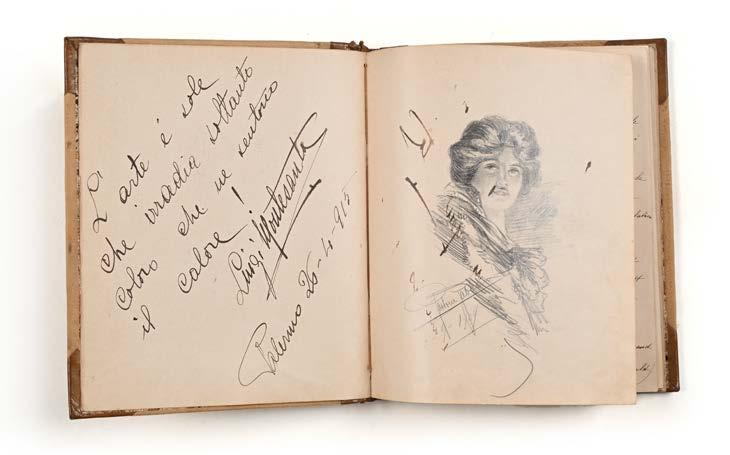 L'arte è sole
che irradia soltanto
coloro che ne sentono
il calore!
Luigi Montesanto
Palermo 26-4-915